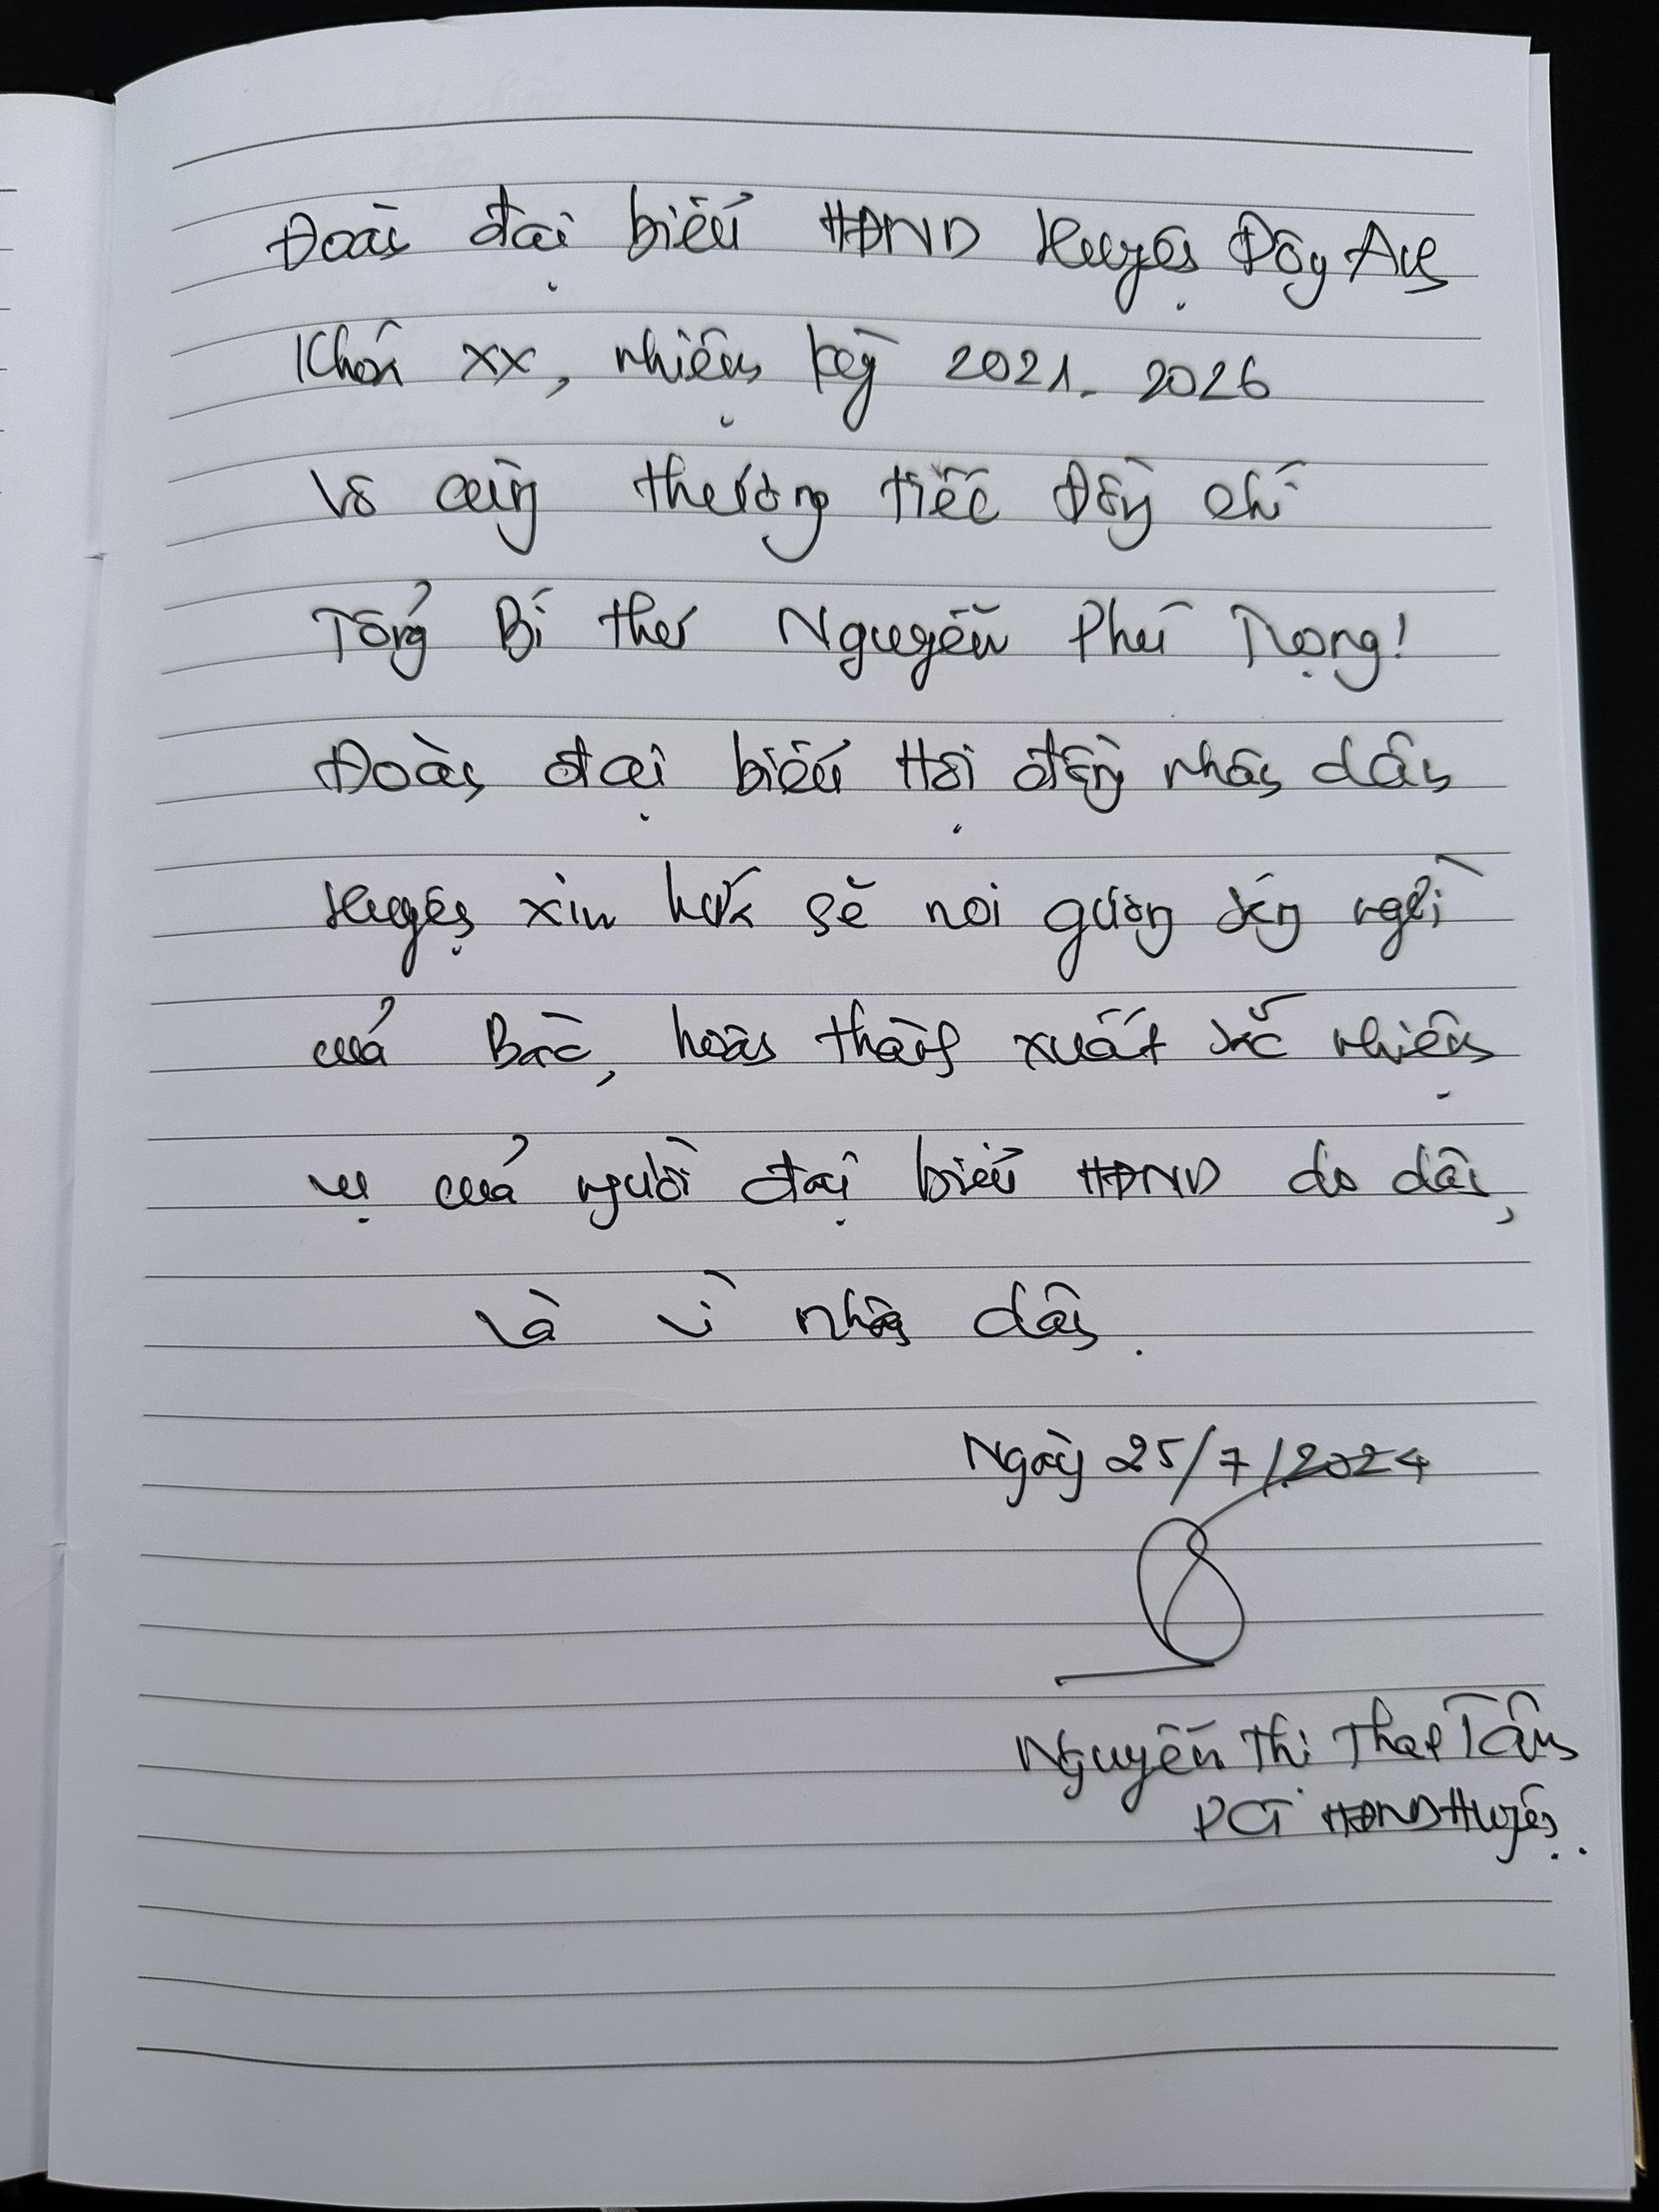 Đoàn đại biểu HĐND Huyện Đông Anh
Khóa XX, nhiệm kỳ 2021-2026
Vô cùng thương tiếc Đồng chí
Tổng Bí thư Nguyễn Phú Trọng!
Đoàn đại biểu Hội đồng nhân dân
Huyện xin hứa sẽ noi gương sáng ngời
của Bác, hoàn thành xuất sắc nhiệm
vụ của người đại biểu HĐND do dân,
và vì nhân dân.
Ngày 25/7/2024
Nguyễn Thị Tâm
PCT HĐND Huyện.